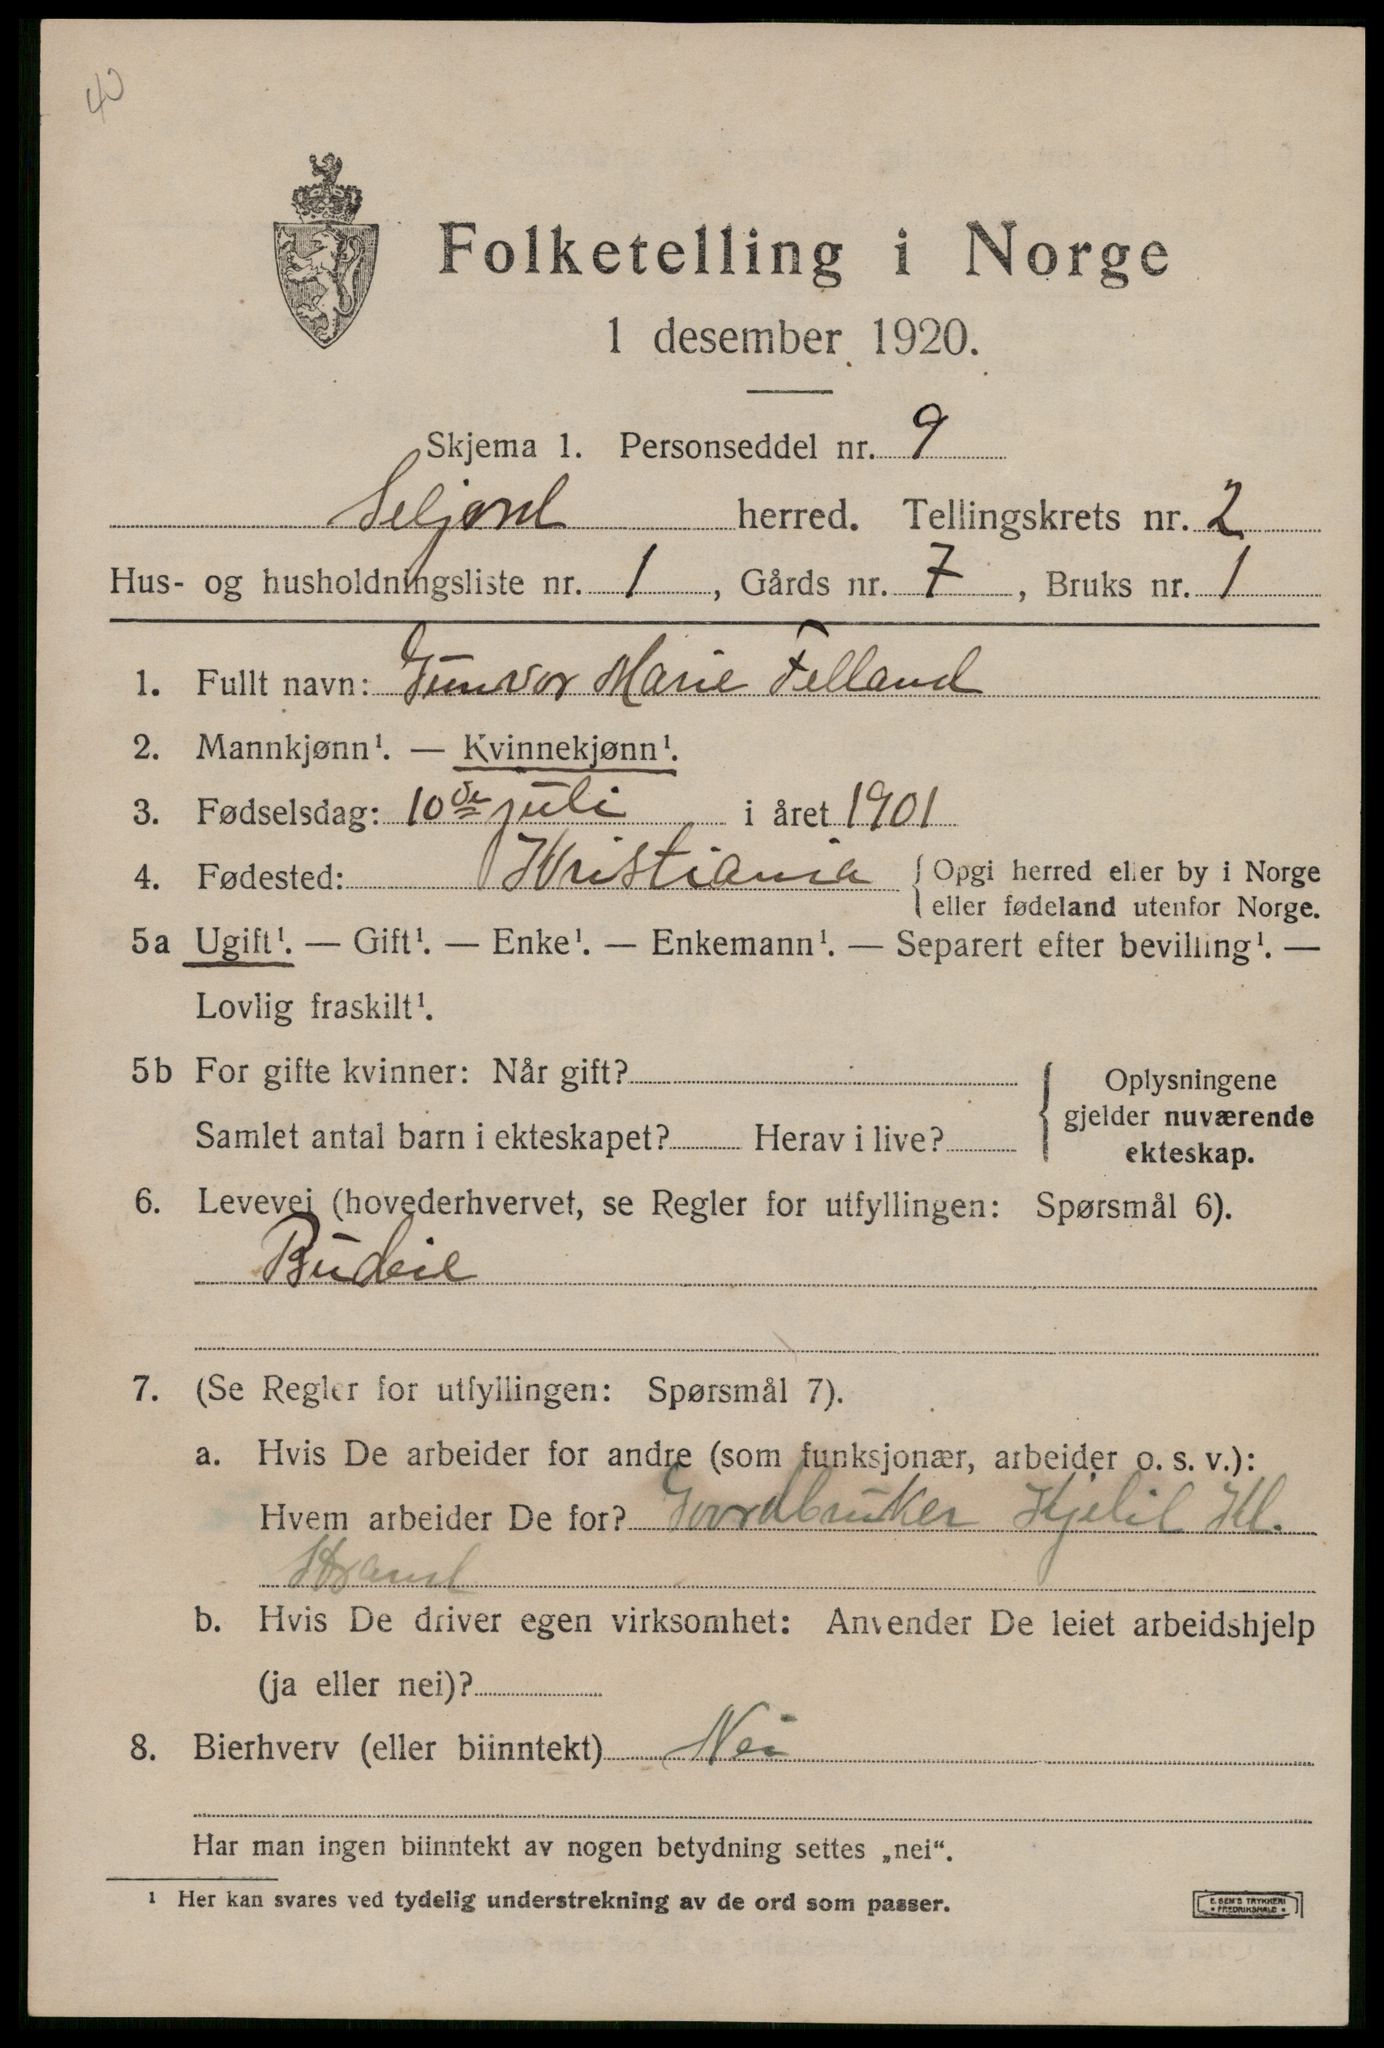 40
Folketelling i Norge
1 desember 1920.
Skjema 1. Personseddel nr. 9
Seljord herred. Tellingskrets nr. 2
Hus- og husholdningsliste nr. 1, Gårds nr. 7, Bruks nr. 1
1. Fullt navn: Gunvor Marie Felland
2. Mannkjønn¹. — Kvinnekjønn¹.
3. Fødselsdag: 10de juli i året 1901
4. Fødested: Kristiania { Opgi herred eller by i Norge
eller fødeland utenfor Norge.
5a Ugift¹. — Gift¹. — Enke¹. — Enkemann¹. — Separert efter bevilling¹. —
Lovlig fraskilt¹.
5b For gifte kvinner: Når gift?
Samlet antal barn i ekteskapet? Herav i live?
{ Oplysningene
gjelder nuværende
ekteskap.
6. Levevei (hovederhvervet, se Regler for utfyllingen: Spørsmål 6).
Budeie
7. (Se Regler for utfyllingen: Spørsmål 7).
a. Hvis De arbeider for andre (som funksjonær, arbeider o. s. v.):
Hvem arbeider De for? Gaardbruker Kjetil Kl.
Strand
b. Hvis De driver egen virksomhet: Anvender De leiet arbeidshjelp
(ja eller nei)?
8. Bierhverv (eller biinntekt) Nei
Har man ingen biinntekt av nogen betydning settes „nei“.
¹ Her kan svares ved tydelig understrekning av de ord som passer.
E. SEM'S TRYKKERI
FREDRIKSHALD